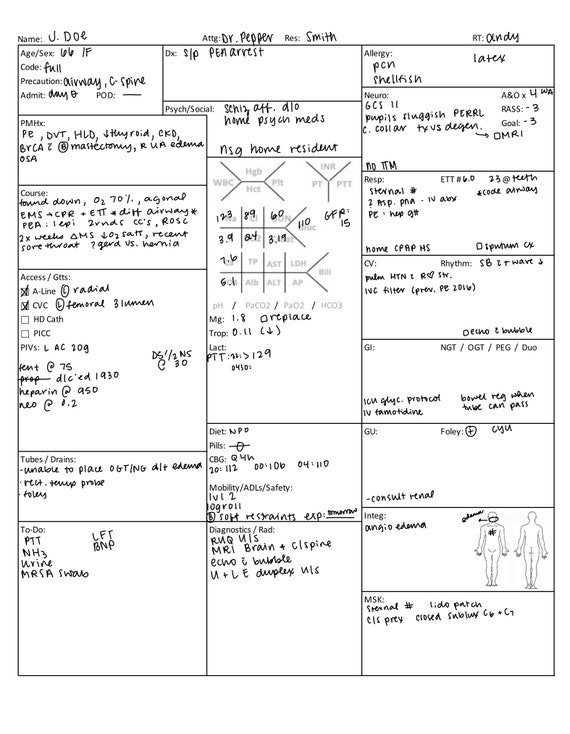 Name: J. Doe Attg: Dr. Pepper Res: Smith RT: Andy
Age/Sex: 66 /F
Code: full
Precaution: airway, C-spine
Admit: day 0 POD: —
Dx: s/p PEA arrest
Psych/Social: schiz aff. d/o
home psych meds
nsg home resident
Allergy:
latex
pcn
shellfish
Neuro: A&O x 4 WA
GCS 11 RASS: -3
pupils sluggish PERRL Goal: -3
c. collar tx vs degen. → □MRI
no TTM
PMHx:
PE, DVT, HLD, ↓thyroid, CKD,
BrCA c̄ Ⓑ mastectomy, R UA edema
OSA
Course:
found down, O2 70%, agonal
EMS → CPR + ETT *diff airway*
PEA: 1 epi 2rnds cc's, ROSC
2x weeks ΔMS ↓O2 sats, recent
sore throat ? gerd vs. hernia
WBC Hgb Hct Plt
INR PT PTT
123 89 60
110 GFR: 15
3.9 24 3.19
7.6 TP AST LDH Bili
5.1 Alb ALT AP
pH / PaCO2 / PaO2 / HCO3
Mg: 1.8 □replace
Trop: 0.11 (↓)
Lact:
PTT: >129
0430:
Resp: ETT #6.0 23 @ teeth
sternal # *code airway
? Asp. pna - IV abx
PE: hep gtt
home CPAP HS □ sputum cx
CV: Rhythm: SB c̄ t wave ↓
pulm HTN c̄ R♡ str.
IVC filter (prev. PE 2016)
□echo c̄ bubble
Access / Gtts:
☒ A-Line Ⓛ radial
☒ CVC Ⓛ femoral 3 lumen
☐ HD Cath
☐ PICC
PIVs: L AC 20g
D5 1/2 NS @ 30
fent @ 75
prop d/c'ed 1930
heparin @ 950
neo @ 0.2
GI: NGT / OGT / PEG / Duo
ICU glyc. protocol bowel reg when
IV famotidine tube can pass
Diet: NPO
Pills: ⦵
CBG: Q4h
20: 112 00:106 04: 110
Mobility/ADLs/Safety:
lvl 2
logroll
Ⓑ soft restraints exp: tomorrow
GU: Foley: ⊕ cyu
-consult renal
Tubes / Drains:
-unable to place OGT/NG d/t edema
- rect. temp probe
- foley
To-Do:
PTT LFT
NH3 BNP
urine
MRSA swab
Diagnostics / Rad:
RUQ U/S
MRI Brain + C/spine
echo c̄ bubble
U + L E duplex U/S
Integ:
edema
angio edema
#
MSK:
sternal # lido patch
c/s prex closed sublux C6 + C7